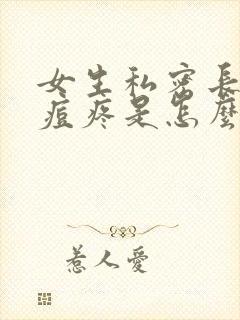 女生私密長
痘疼是怎麼
惹人愛